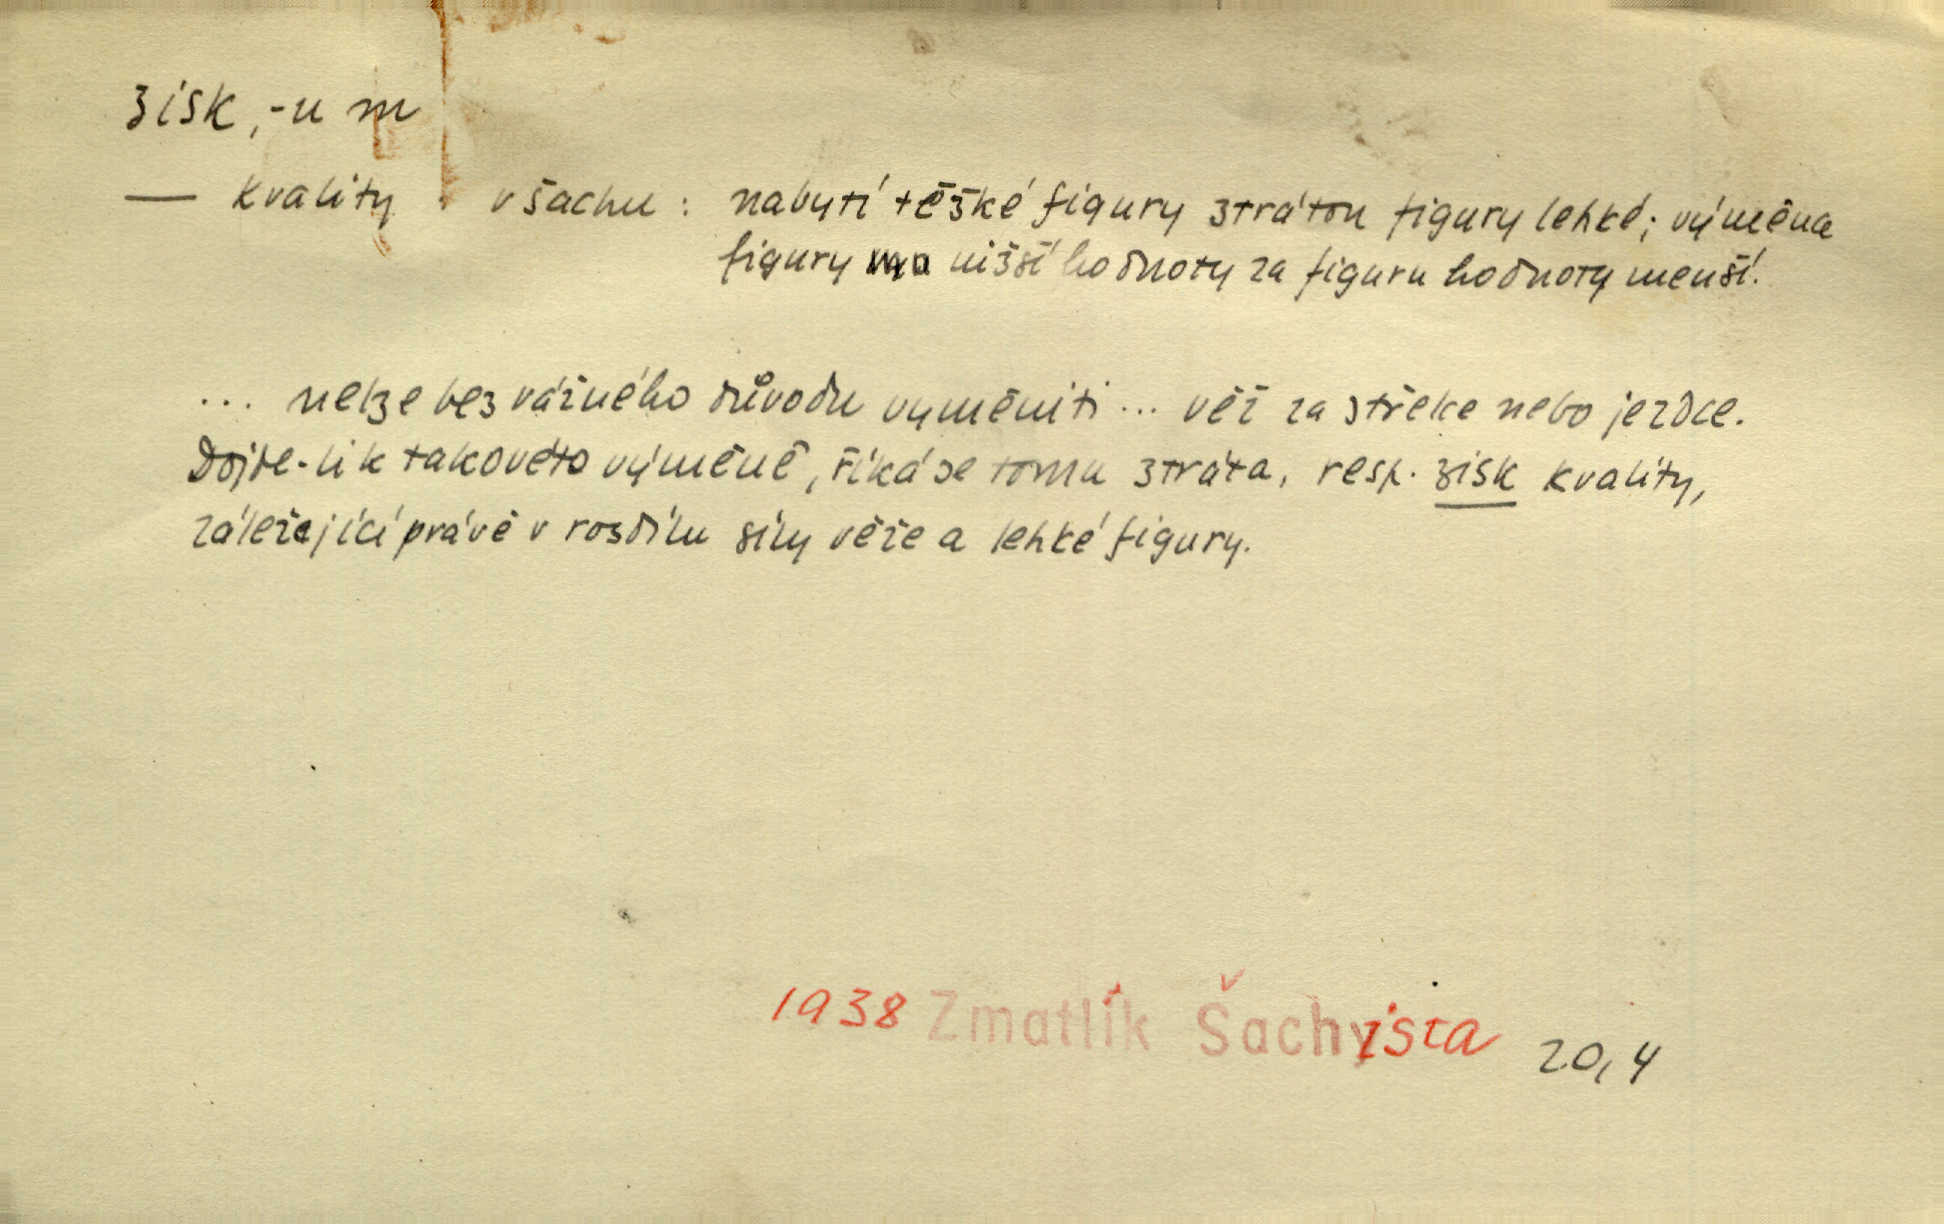 zisk, -u m
— kvality v šachu: nabytí těžké figury ztrátou figury lehké; výměna
figury nižší hodnoty za figuru hodnoty menší.
... nelze bez vážného důvodu vyměniti ... věž za střelce nebo jezdce.
Dojde-li k takovéto výměně, říká se tomu ztráta, resp. zisk kvality,
záležející právě v rozdílu síly věže a lehké figury.
1938 Zmatlík Šachista 20,4